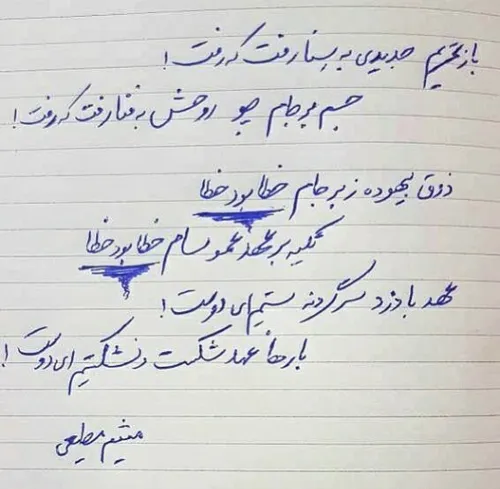 باز تحریم جدیدی به سنا رفت که رفت!
جسم برجام چو روحش به فنا رفت که رفت!
ذوق بیهوده ز برجام خطا بود خطا
تکیه بر عهد عمو سام خطا بود خطا
عهد با دزد سر گردنه بستیم ای دوست!
بارها عهد شکست و نشکستیم ای دوست!
میثم مطیعی